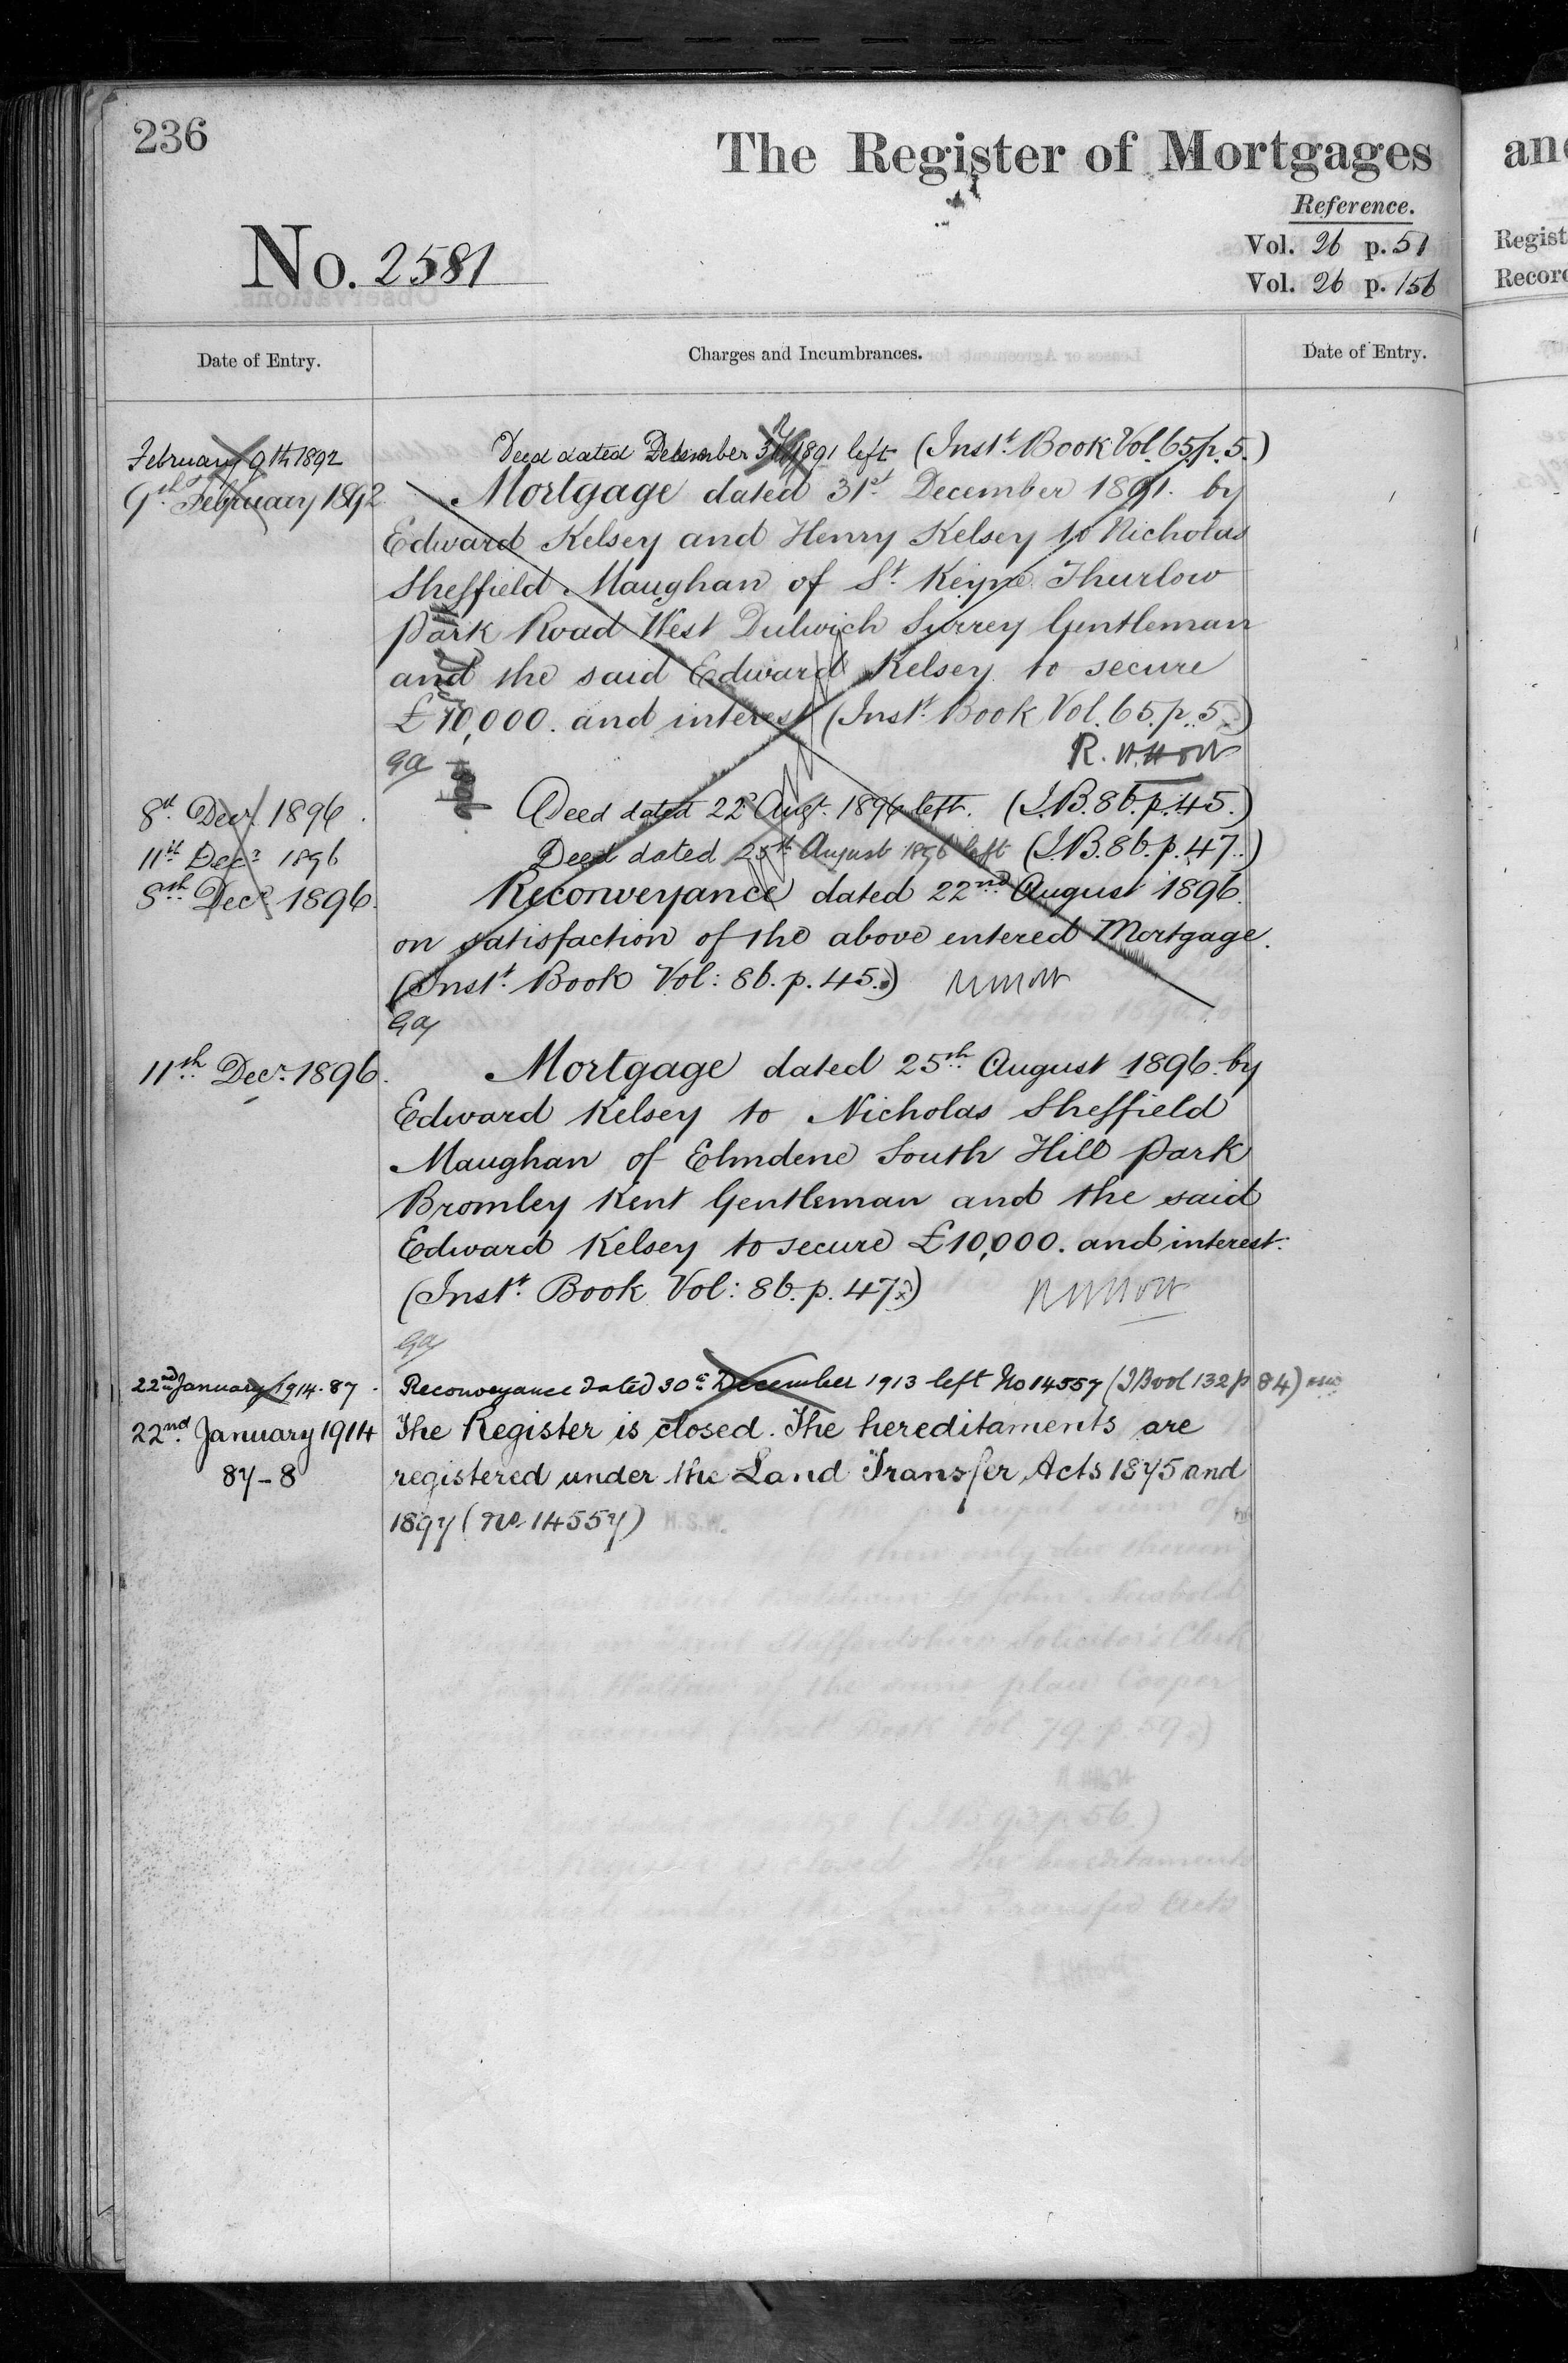 236
The Register of Mortgages
Reference.
No. 2581
Vol. 26 p. 51
Vol. 26 p. 156
Date of Entry.
Charges and Incumbrances.
Date of Entry.
February 9th 1892
Deed dated December 31 1891 left (Inst. Book Vol. 65. p. 5.)
9th February 1892
Mortgage dated 31st December 1891. by
Edward Kelsey and Henry Kelsey to Nicholas
Sheffield Maughan of St. Keyne Thurlow
Park Road West Dulwich Surrey Gentleman
and the said Edward Kelsey to secure
£10,000. and interest (Inst. Book Vol. 65. p. 5.)
8th Decr. 1896.
Deed dated 22d Augt. 1896 left. (I.B. 86. p. 45.)
11th Decr. 1896
Deed dated 25th August 1896 left (I.B. 86. p. 47.)
8th Decr. 1896.
Reconveyance dated 22nd August 1896.
on satisfaction of the above entered Mortgage.
(Inst. Book Vol: 86. p. 45.)
11th Decr. 1896.
Mortgage dated 25th August 1896. by
Edward Kelsey to Nicholas Sheffield
Maughan of Elmdene South Hill Park
Bromley Kent Gentleman and the said
Edward Kelsey to secure £10,000. and interest.
(Inst. Book Vol: 86. p. 47.)
22nd January 1914. 87.
Reconveyance dated 30th December 1913 left No 14557 (I Book 132 p 84)
22nd January 1914
The Register is closed. The hereditaments are
87-8
registered under the Land Transfer Acts 1875 and
1897 (No. 14557)
an
Regist
Record